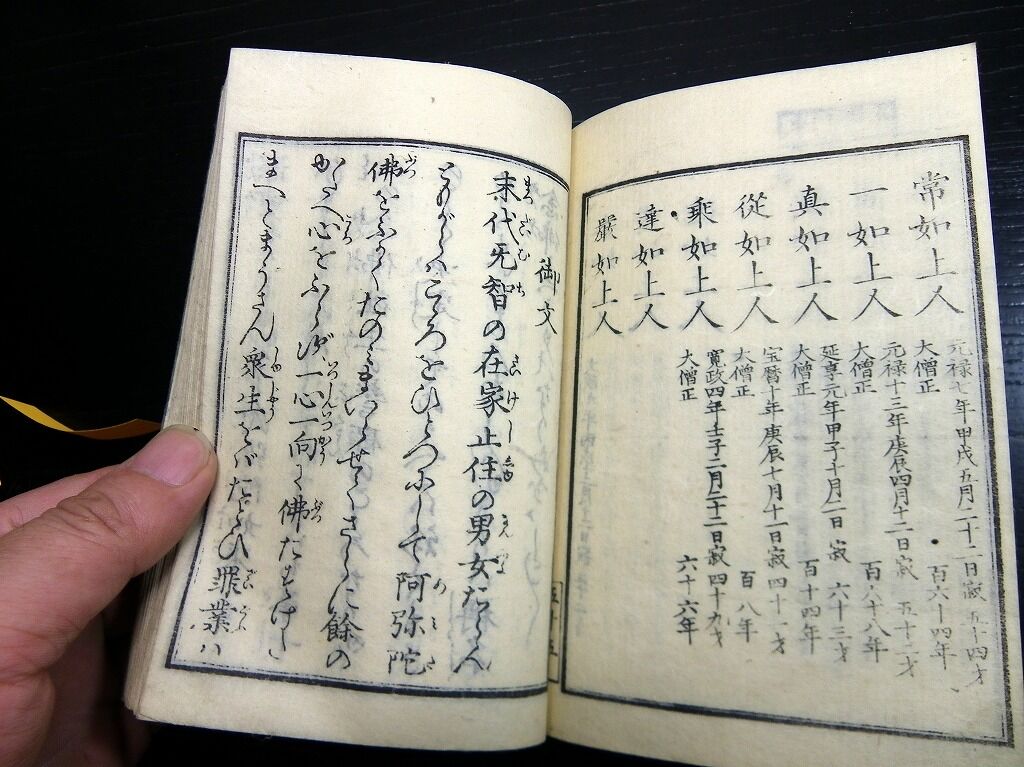 常如上人
元禄七年甲戌五月二十二日寂五十四才
大僧正 百六十四年
一如上人
元禄十三年庚辰四月十二日寂 五十二才
大僧正
真如上人
延享元年甲子十月二日寂 六十三才
大僧正 百十四年
從如上人
宝暦十年庚辰十月十一日寂四十一才
大僧正 百八年
乘如上人
寛政四年壬子二月二十二日寂四十九才
大僧正 六十六年
達如上人
嚴如上人
御文
末代无智の在家止住の男女たらん
ともがらハこゝろをひとつにして阿弥陀
佛をふかくたのミまいらせてさらに餘の
かたへ心をふらず一心一向に佛たすけた
まへとまうさん衆生をバたとひ罪業ハ